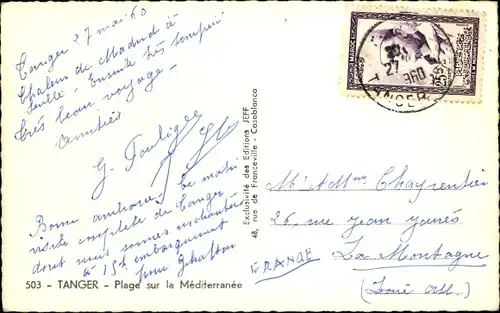 Tanger 27 mai 60
Chaleur de Madrid à
Séville - Ensuite très tempéré
très beau voyage -
Amitiés
G.
Bonne ambiance Ce matin
visite complète de Tanger
dont nous sommes enchantés
à 15h embarquement
pour
503 - TANGER - Plage sur la Méditerranée
Exclusivité des Editions JEFF
48, rue de Franceville - Casablanca
MAROC
27
960
TANGER
Mr et Mme Charpentier
26, rue Jean Jaurès
La Montagne
(Loire Atl.)
FRANCE